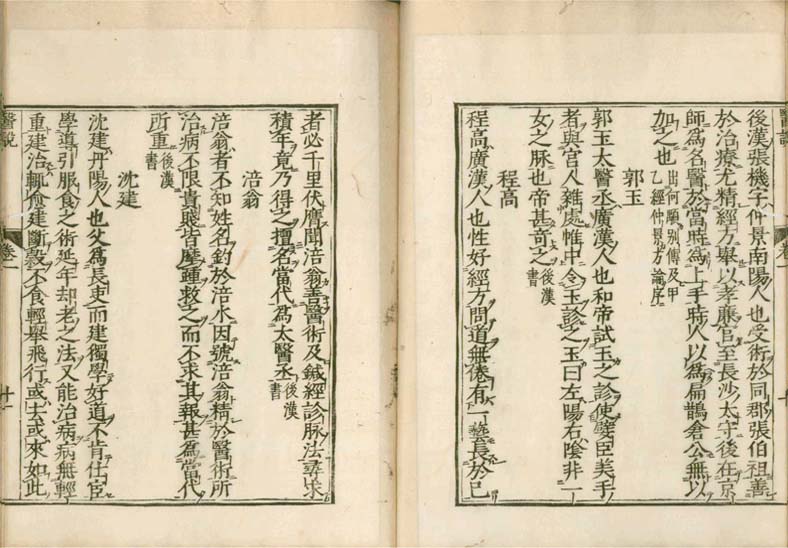 後漢張機字仲景南陽人也受術於同郡張伯祖善
於治療尤精經方舉以孝廉官至長沙太守後在京
師爲名醫於當時爲上手時人以爲扁鵲倉公無以
加之也 出何顒別傳及甲乙經仲景方論序
郭玉
郭玉太醫丞廣漢人也和帝試玉之診使嬖臣美手
者與宮人雜處帷中令玉診之玉曰左陽右陰非一
女之脉也帝甚奇之 後漢書
程高
程高廣漢人也性好經方問道無倦有一藝長於己
醫說
卷一
者必千里伏膺聞涪翁善醫術及鍼經診脉法尋求
積年竟乃得之擅名當代爲太醫丞 後漢書
涪翁
涪翁者不知姓名釣於涪水因號涪翁精於醫術所
治病不限貴賤皆摩踵救之而不求其報甚爲當代
所重 後漢書
沈建
沈建丹陽人也父爲長吏而建獨學好道不肯仕宦
學導引服食之術延年却老之法又能治病病無輕
重建治輒愈建斷穀不食輕舉飛行或去或來如此
醫說
卷一
十一